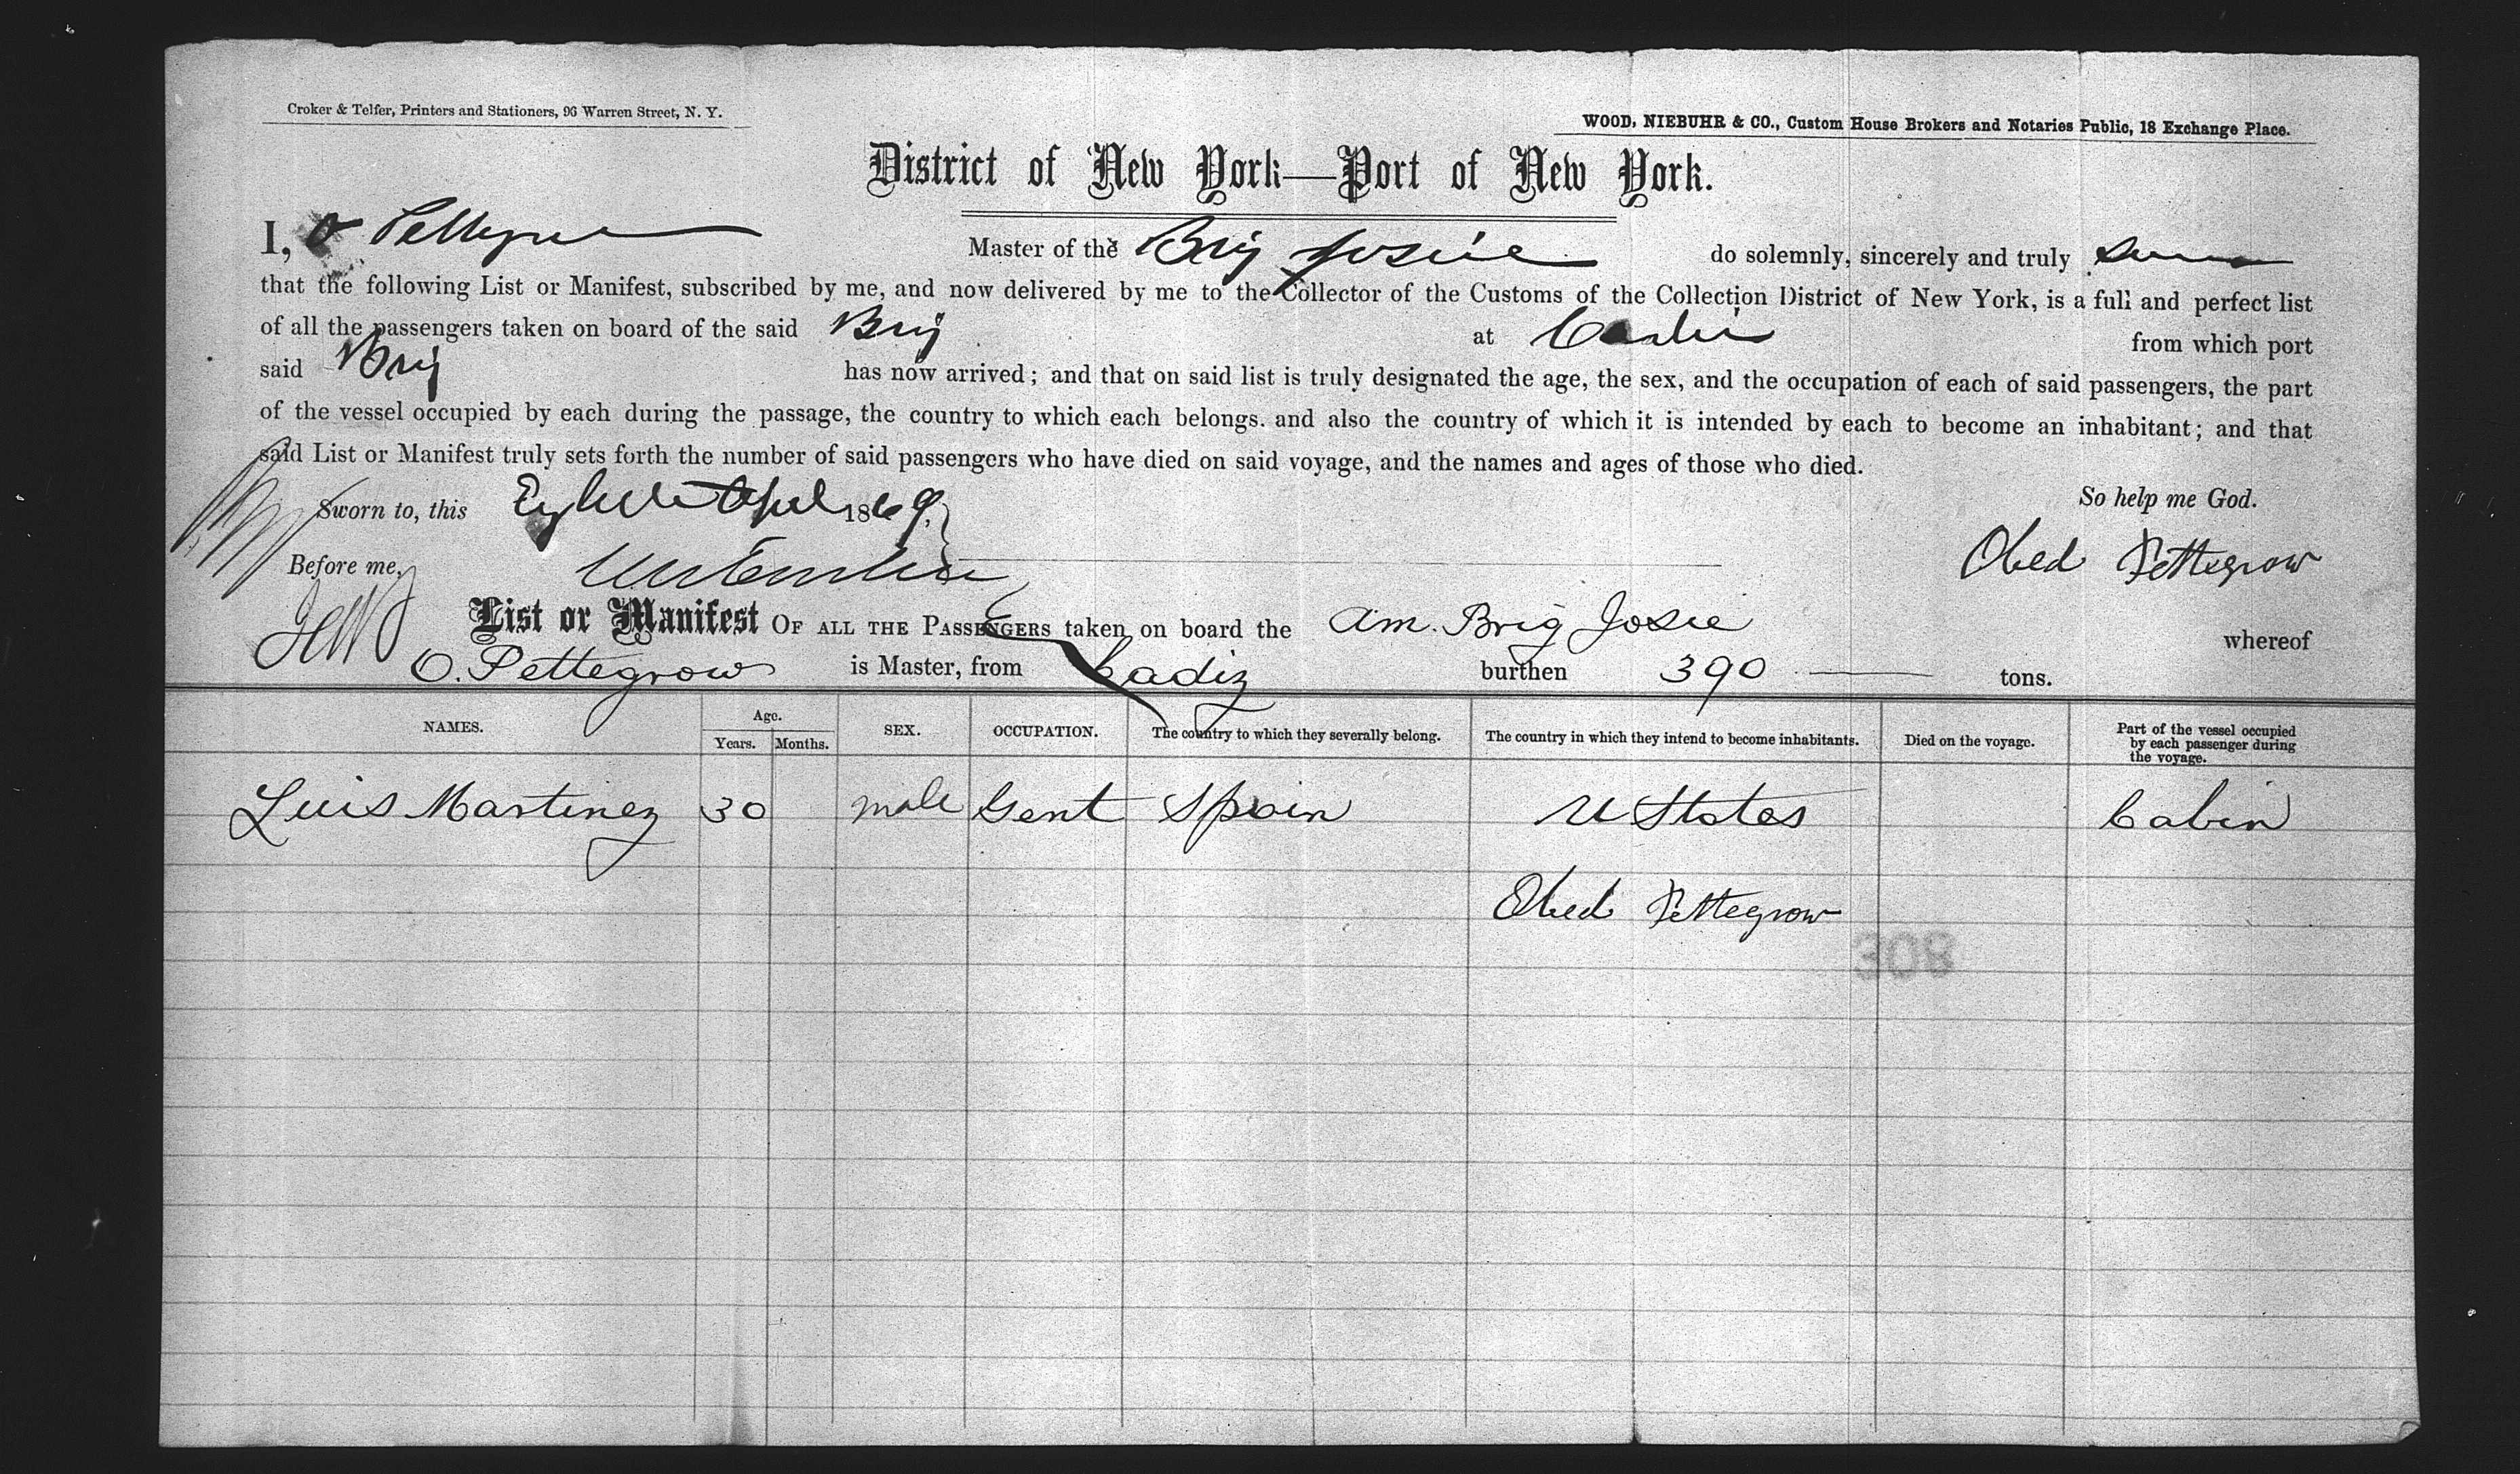 Croker & Telfer, Printers and Stationers, 96 Warren Street, N. Y.
WOOD, NIEBUHR & CO., Custom House Brokers and Notaries Public, 18 Exchange Place.
District of New York—Port of New York.
I, O Pettegrew Master of the Brig Josie do solemnly, sincerely and truly swear
that the following List or Manifest, subscribed by me, and now delivered by me to the Collector of the Customs of the Collection District of New York, is a full and perfect list
of all the passengers taken on board of the said Brig at Cadiz from which port
said Brig has now arrived; and that on said list is truly designated the age, the sex, and the occupation of each of said passengers, the part
of the vessel occupied by each during the passage, the country to which each belongs. and also the country of which it is intended by each to become an inhabitant; and that
said List or Manifest truly sets forth the number of said passengers who have died on said voyage, and the names and ages of those who died.
Sworn to, this Eighth April 1869. So help me God.
Before me, Obed Pettegrow
List or Manifest OF ALL THE PASSENGERS taken on board the Am. Brig Josie whereof
O. Pettegrow is Master, from Cadiz burthen 390 tons.
NAMES. Age. Years. Months. SEX. OCCUPATION. The country to which they severally belong. The country in which they intend to become inhabitants. Died on the voyage. Part of the vessel occupied by each passenger during the voyage.
Luis Martinez 30 male Gent Spain U States Cabin
Obed Pettegrow
308